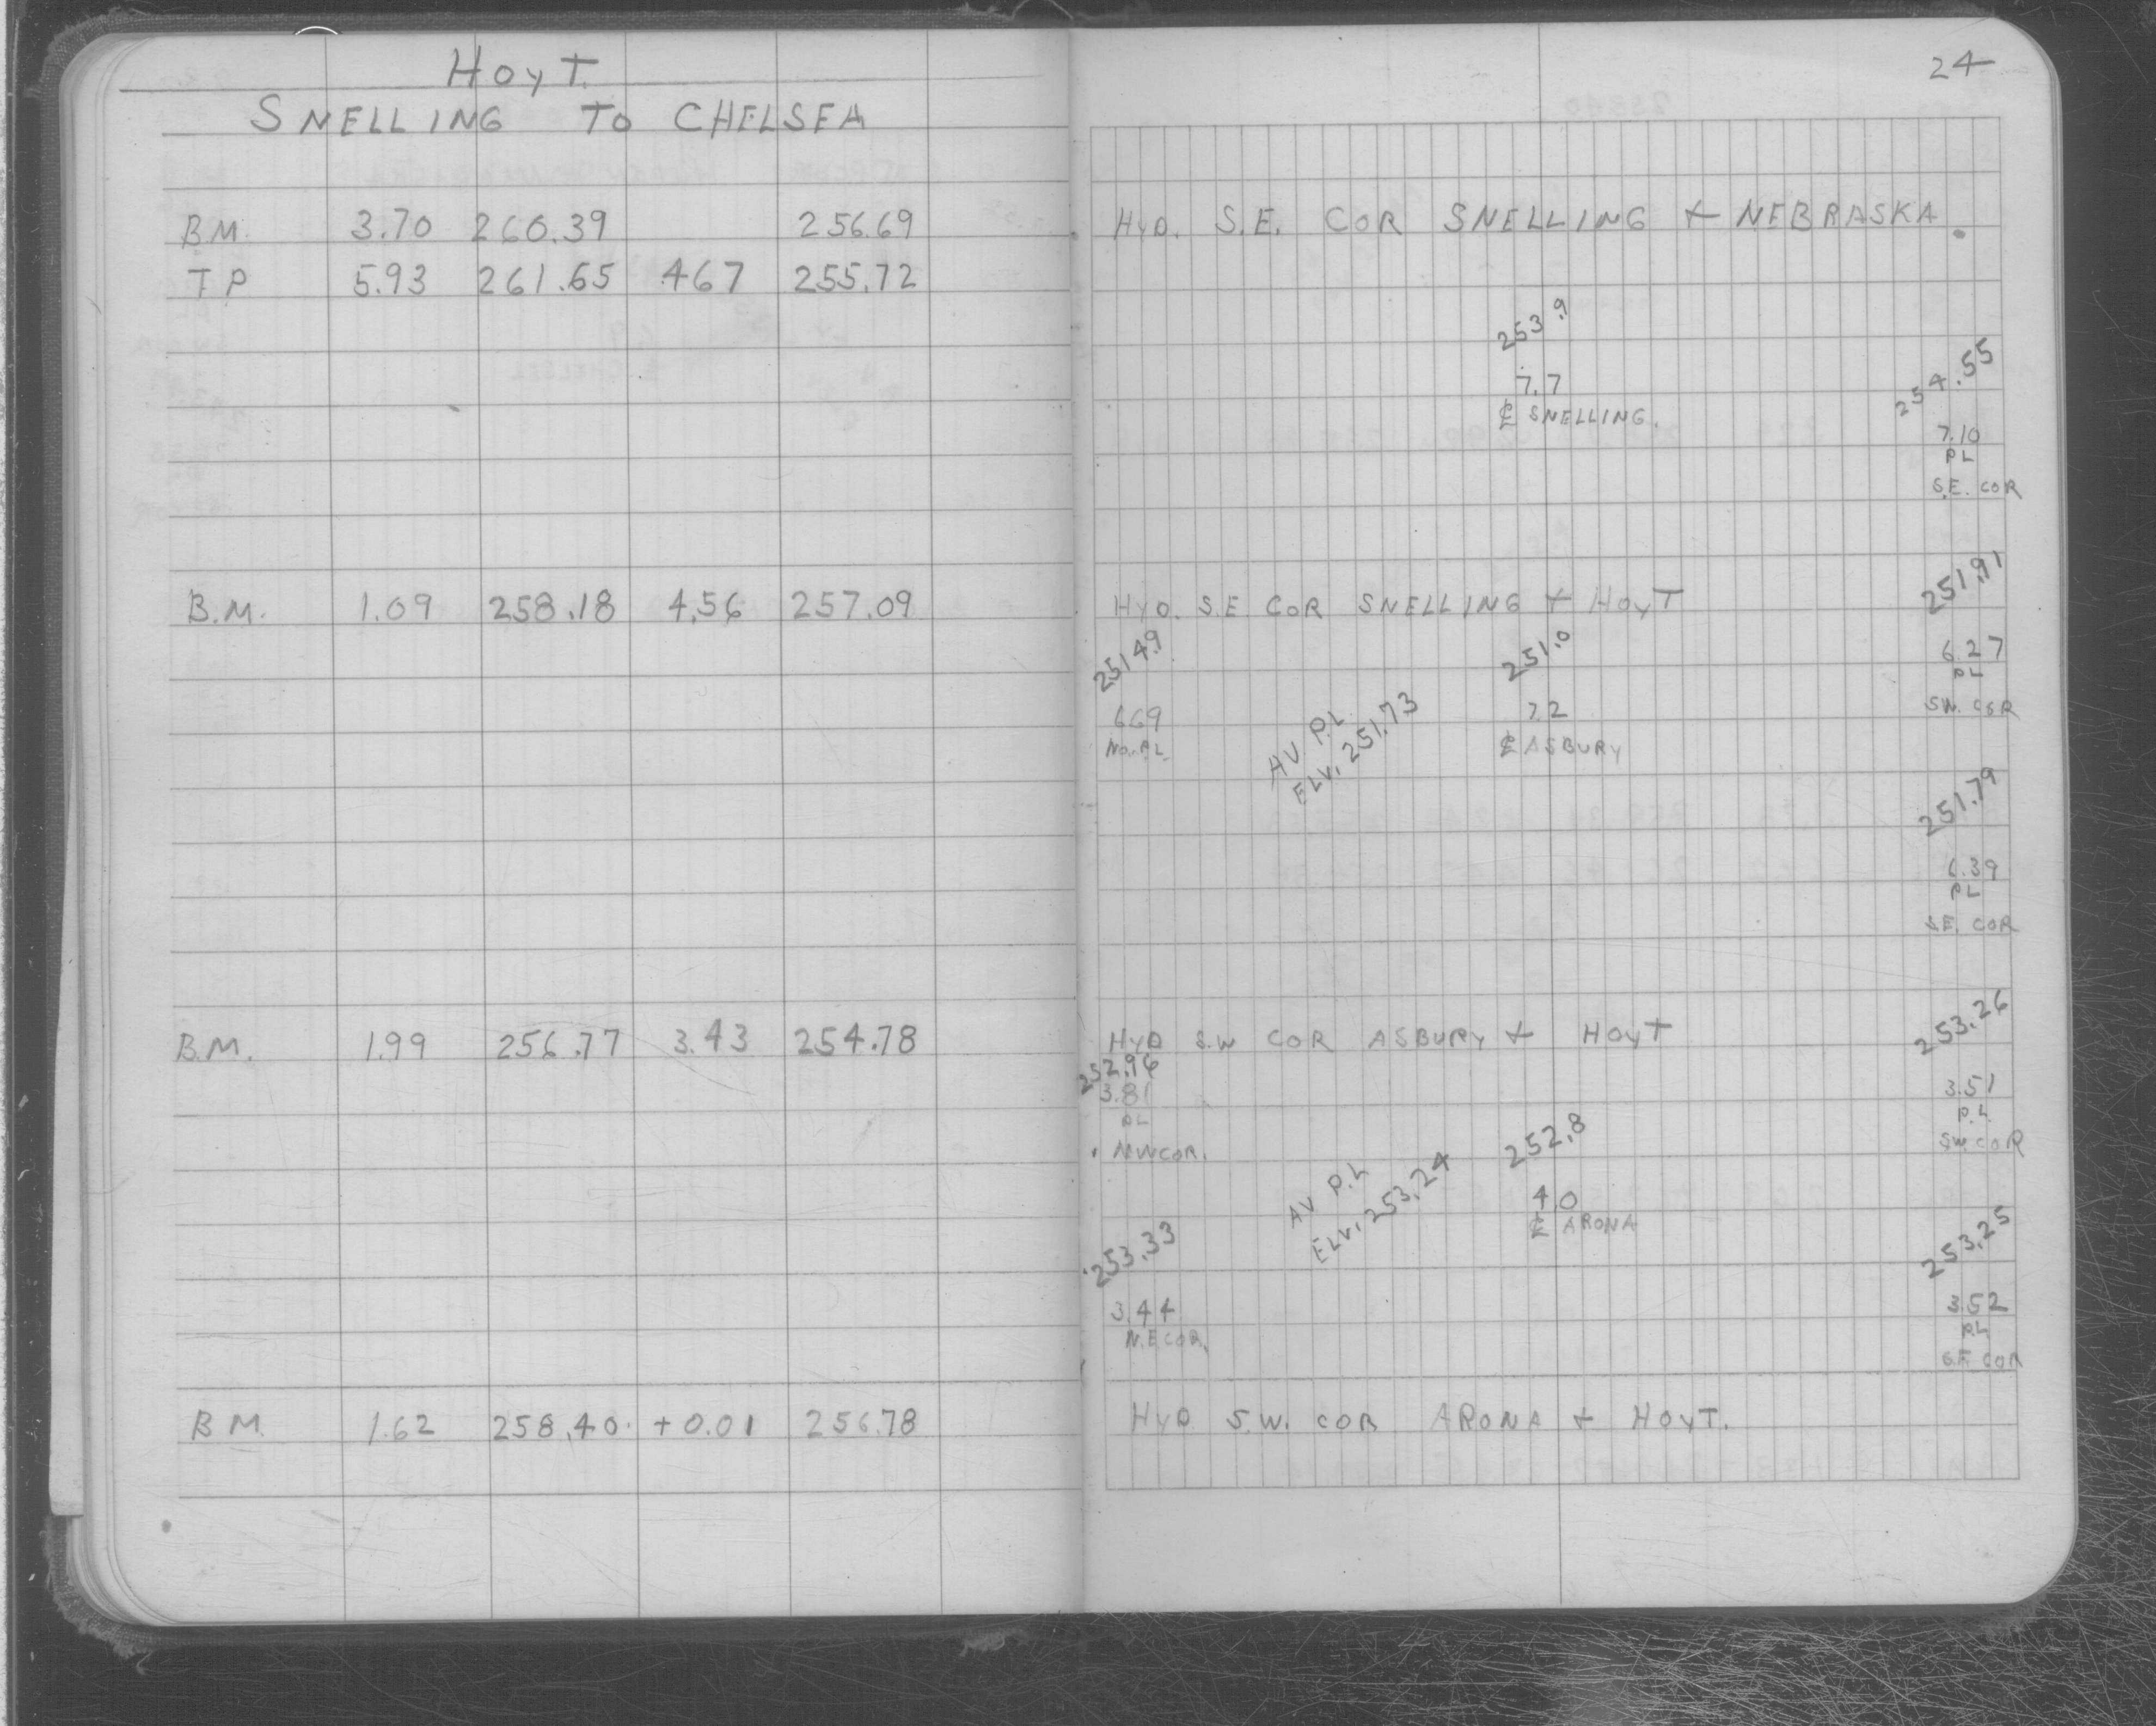 HOYT.
SNELLING TO CHELSEA
24
B.M. 3.70 260.39 256.69 HYD. S.E. COR SNELLING + NEBRASKA.
T P 5.93 261.65 4.67 255.72
253.9
7.7
℄ SNELLING.
254.55
7.10
PL
S.E. COR
B.M. 1.09 258.18 4.56 257.09 HYD. S.E COR SNELLING + HOYT
251.49
6.69
No. P.L.
AV P.L
ELV. 251.73
251.0
7.2
℄ ASBURY
251.91
6.27
PL
SW. COR
251.79
6.39
PL
S.E. COR
B.M. 1.99 256.77 3.43 254.78 HYD S.W COR ASBURY + HOYT
252.96
3.81
PL
NW COR.
AV P.L
ELV. 253.24
252.8
4.0
℄ ARONA
253.26
3.51
P.L
SW. COR
253.33
3.44
N.E COR.
253.25
3.52
P.L
S.E COR
B M. 1.62 258.40 +0.01 256.78 HYD S.W. COR ARONA + HOYT.